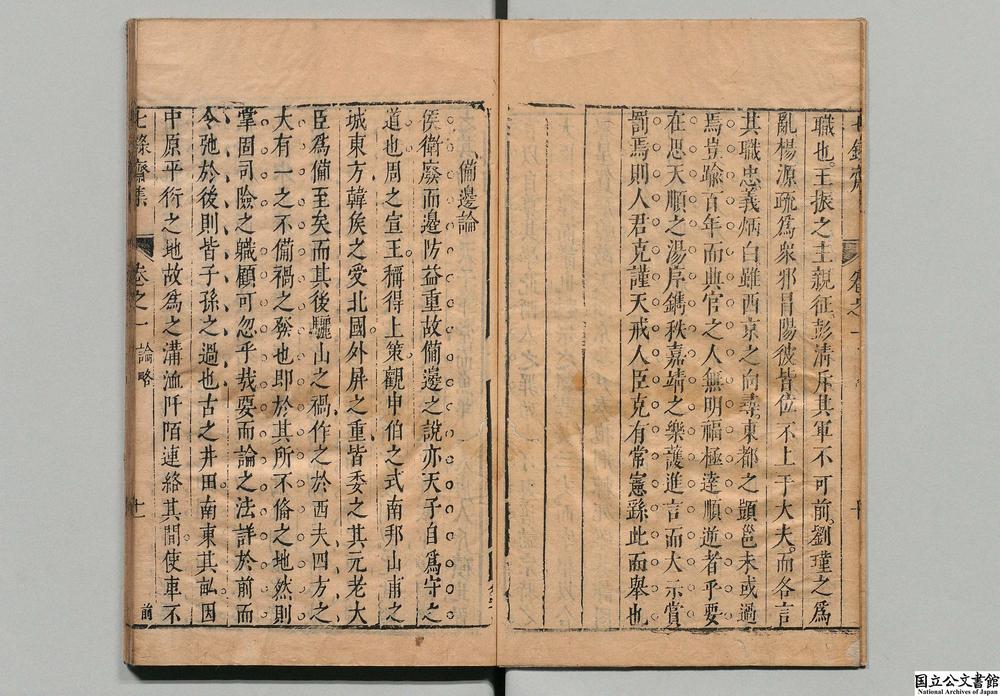 職也王振之主親征彭清斥其軍不可前劉瑾之爲
亂楊源疏爲衆邪冒陽彼皆位不上于大夫而各言
其職忠義炳白雖西京之向尋東都之顗邕未或過
焉豈踰百年而典官之人無明福極達順逆者乎要
在思天順之湯序鐫秩嘉靖之樂頀進言而大示賞
罰焉則人君克謹天戒人臣克有常憲繇此而舉也
備邊論
侯衛廢而邊防益重故備邊之說亦天子自爲守之
道也周之宣王稱得上策觀申伯之式南邦山甫之
城東方韓侯之愛北國外屏之重皆委之其元老大
臣爲備至矣而其後驪山之禍作之於西夫四方之
大有一之不備禍之發也即於其所不備之地然則
掌固司險之職顧可忽乎哉要而論之法詳於前而
令弛於後則皆子孫之過也古之井田南東其畝因
中原平衍之地故爲之溝洫阡陌連絡其間使車不
七錄齋集
卷之一
論略
十一
前
国立公文書館
National Archives of Japan